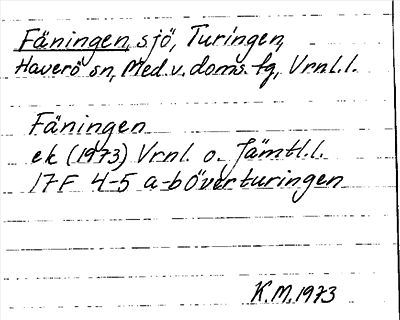 Fäningen, sjö, Turingen,
Haverö sn, Med.v. doms. fg, Vrnl.l.
Fäningen
ek (1973) Vrnl. o. Jämtl.l.
17F 4-5 a-b Överturingen
K.M. 1973